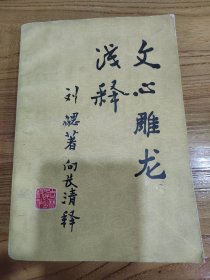 文心雕龙
浅释
刘勰著 向长清释